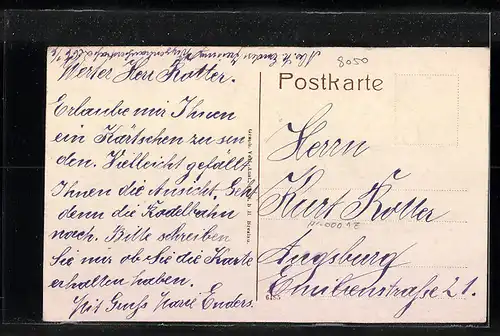 Werter Herr Kotter.
Erlaube mir Ihnen
ein Kärtschen zu sen
den. Vielleicht gefällt
Ihnen die Ansicht. Geht
denn die Rodelbahn
nach. Bitte schreiben
Sie mir ob Sie die Karte
erhalten haben.
Mit Gruß Karl Enders.
8050
Postkarte
Herrn
Kurt Kotter
Augsburg
Emilienstraße 21.